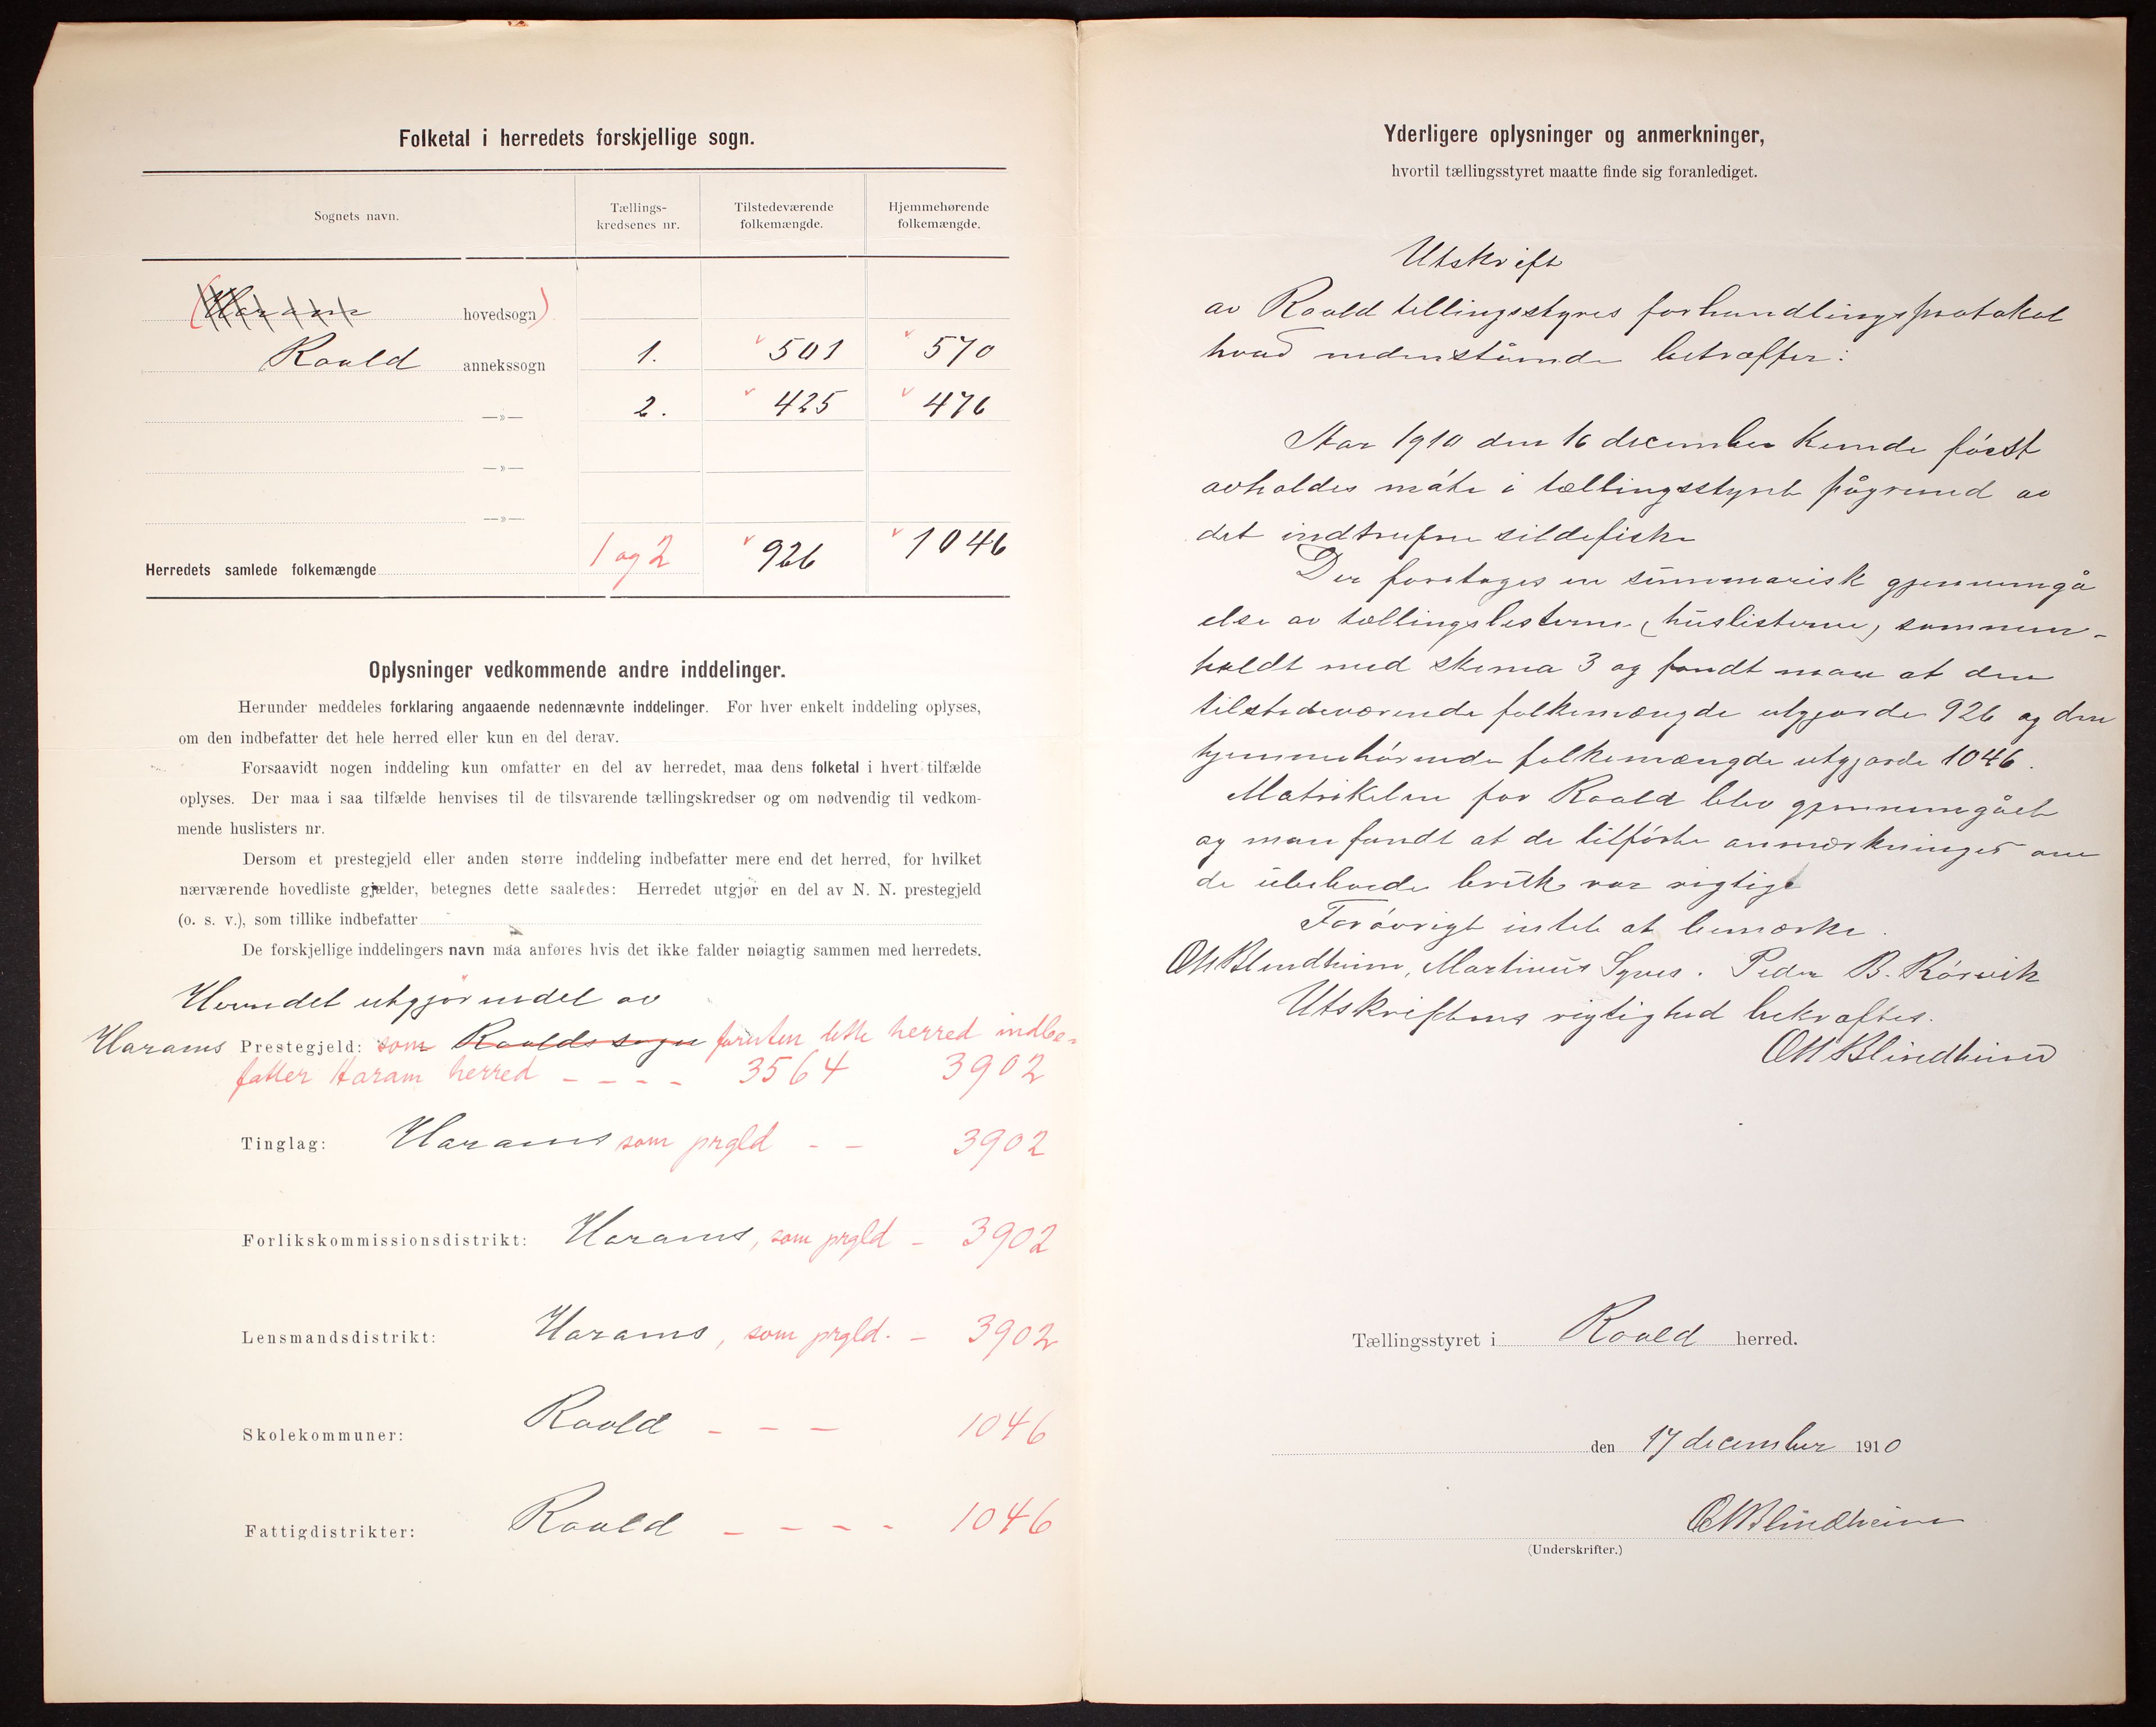 Folketal i herredets forskjellige sogn.
Sognets navn. Tællings-kredsenes nr. Tilstedeværende folkemængde. Hjemmehørende folkemængde.
(Haram hovedsogn)
Roald annekssogn 1. 501 570
—»— 2. 425 476
—»—
—»—
Herredets samlede folkemængde 1 og 2 926 1046
Oplysninger vedkommende andre inddelinger.
Herunder meddeles forklaring angaaende nedennævnte inddelinger. For hver enkelt inddeling oplyses,
om den indbefatter det hele herred eller kun en del derav.
Forsaavidt nogen inddeling kun omfatter en del av herredet, maa dens folketal i hvert tilfælde
oplyses. Der maa i saa tilfælde henvises til de tilsvarende tællingskredser og om nødvendig til vedkom-
mende huslisters nr.
Dersom et prestegjeld eller anden større inddeling indbefatter mere end det herred, for hvilket
nærværende hovedliste gjælder, betegnes dette saaledes: Herredet utgjør en del av N. N. prestegjeld
(o. s. v.), som tillike indbefatter
De forskjellige inddelingers navn maa anføres hvis det ikke falder nøiagtig sammen med herredets.
utgjør endel av
Harams Prestegjeld: som Roalds sogn foruten dette herred indbe-
fatter Haram herred - - - - 3564 3902
Tinglag: Harams som prgld - - 3902
Forlikskommissionsdistrikt: Harams, som prgld - 3902
Lensmandsdistrikt: Harams, som prgld. - 3902
Skolekommuner: Roald - - - 1046
Fattigdistrikter: Roald - - - - 1046
Yderligere oplysninger og anmerkninger,
hvortil tællingsstyret maatte finde sig foranlediget.
Utskrift
av Roald tellingsstyres forhandlingsprotokol
hvad nedenstående betræffer:
Aar 1910 den 16 december kunde først
avholdes møte i tællingsstyret pågrund av
det indtrufne sildefiske
Der foretoges en summarisk gjennemgå
else av tællingslisterne (huslisterne) sammen-
holdt med skema 3 og fandt man at den
tilstedeværende folkemængde utgjorde 926 og den
hjemmehørende folkemængde utgjorde 1046.
Matrikelen for Roald blev gjennemgået
og man fandt at de tilførte anmærkninger om
de ubeboede bruk var rigtige
Forøvrigt intet at bemærke.
OM Blindheim, Martinus Synes. Peder B. Rørvik
Utskriftens rigtighed bekræftes.
OM Blindheim
Tællingsstyret i Roald herred.
den 17 december 1910
OM Blindheim
(Underskrifter.)